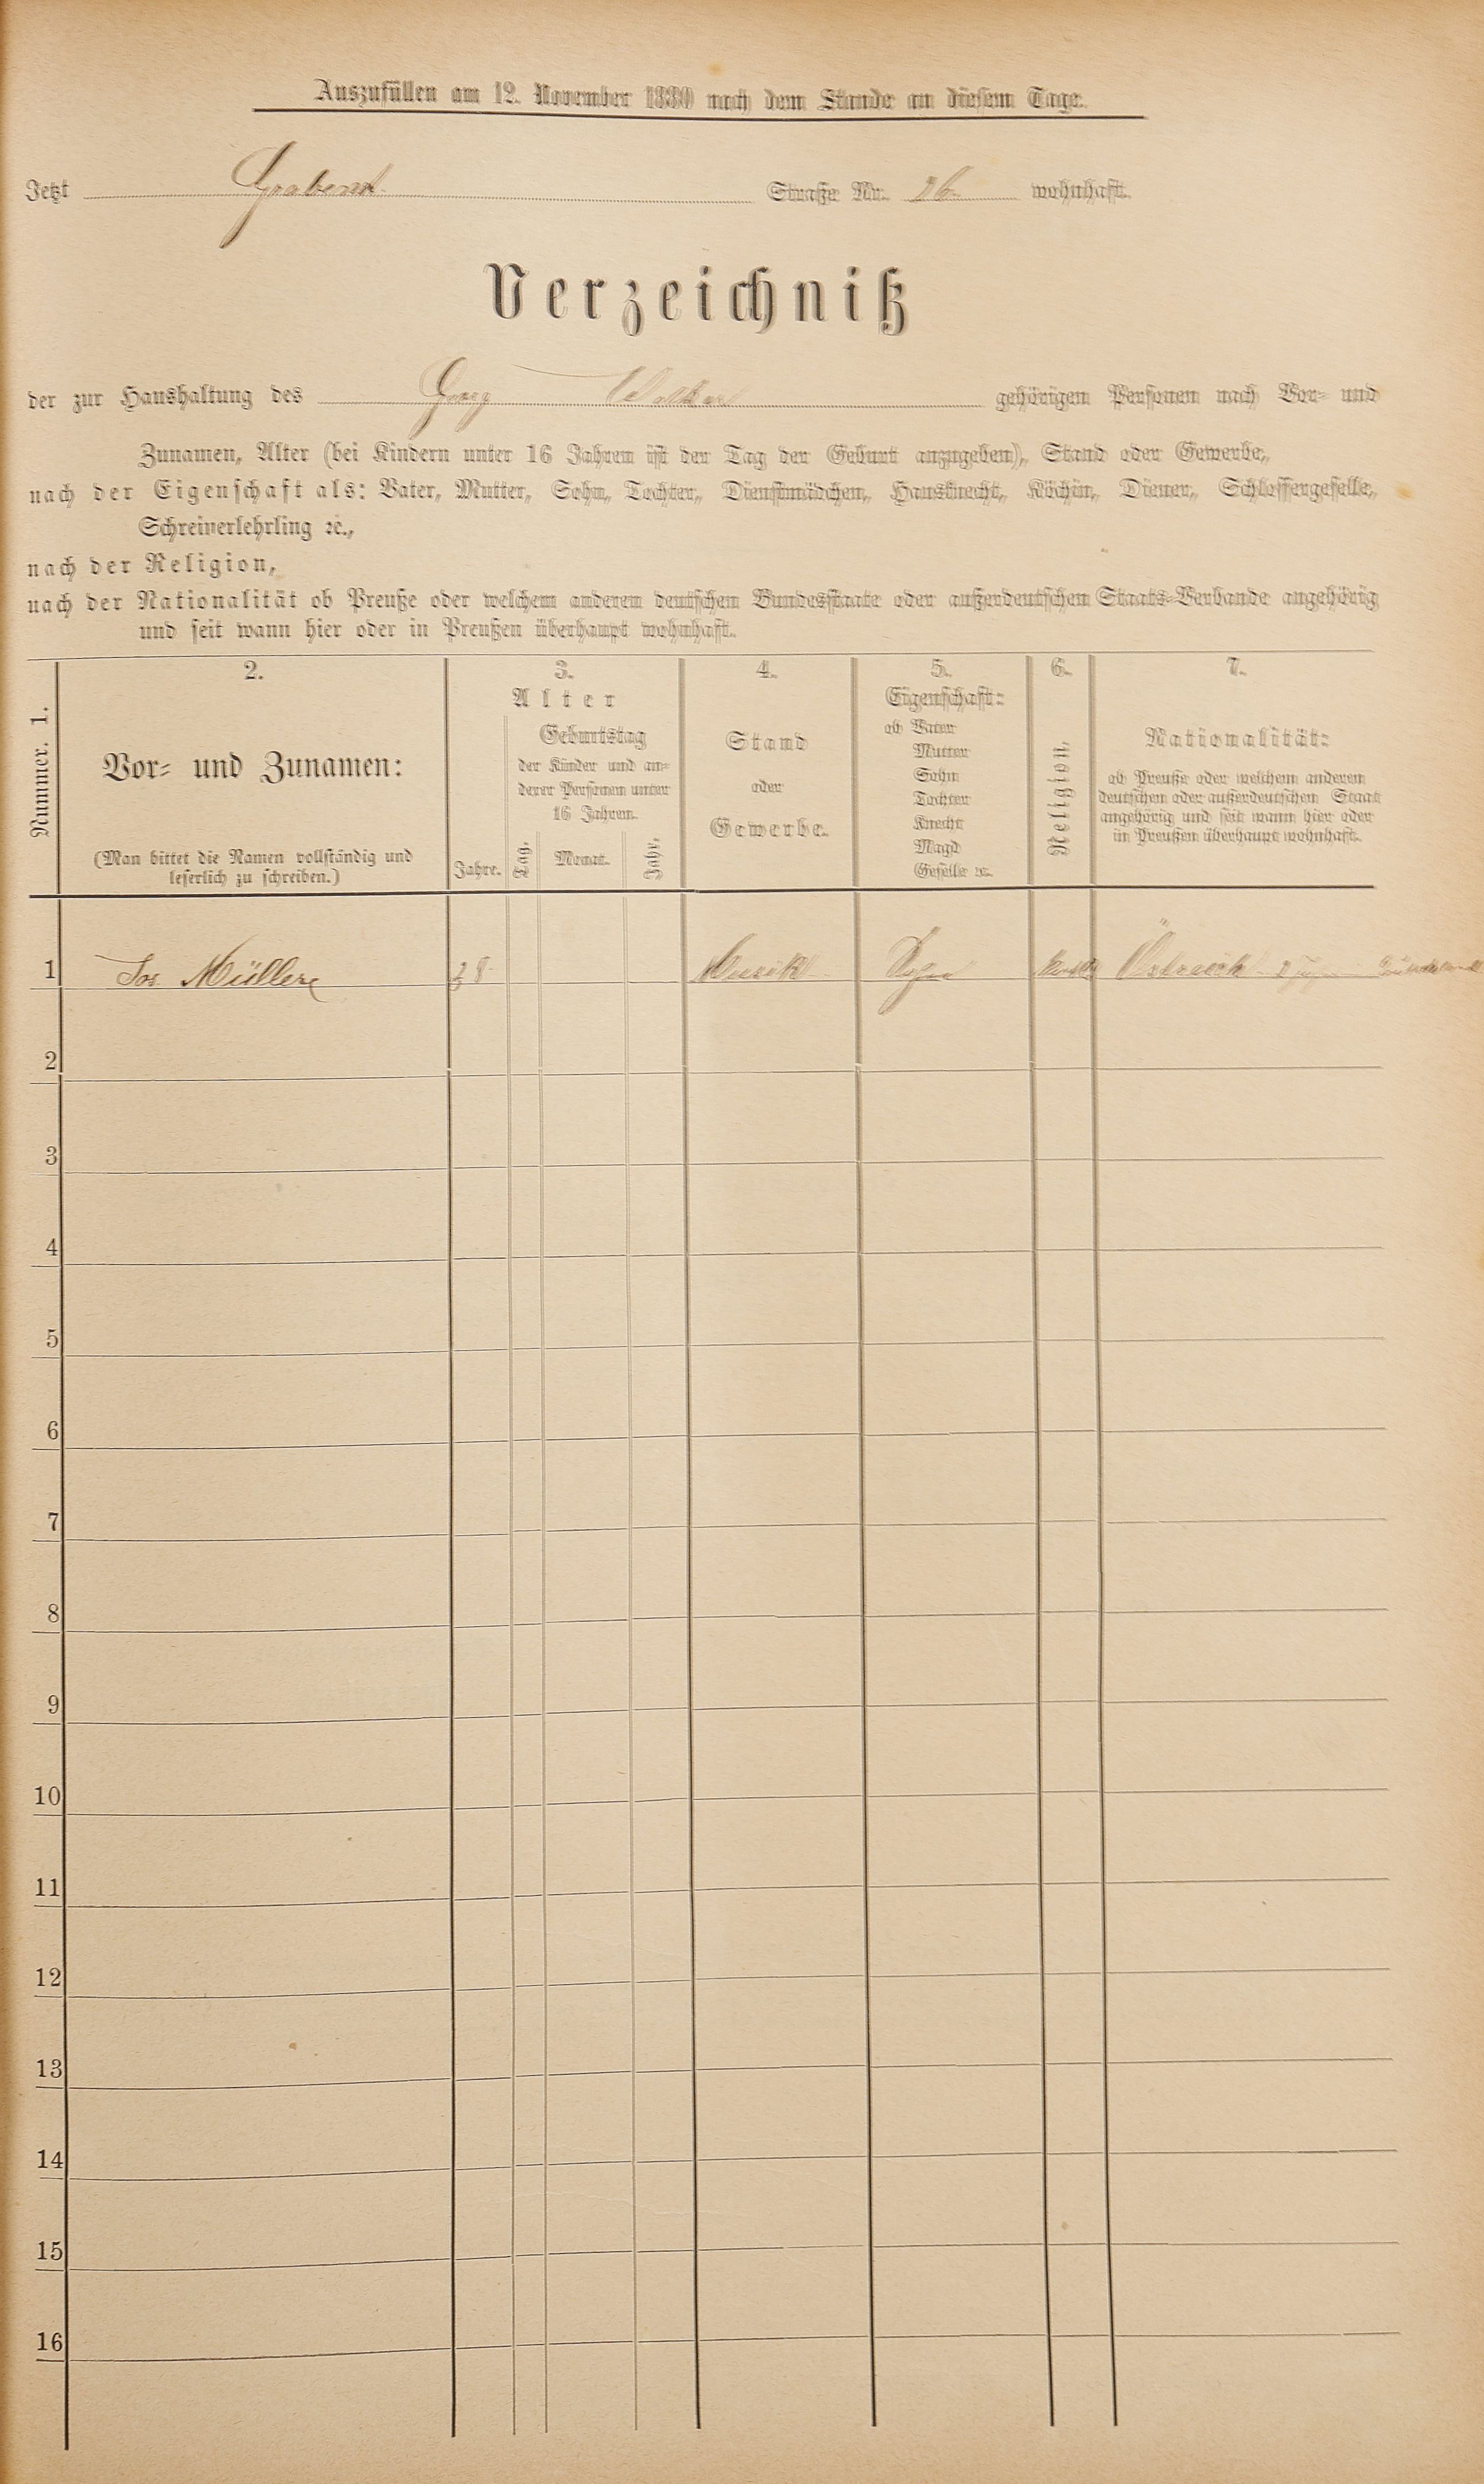 Auszufüllen am 12. November 1880 nach dem Stande an diesem Tage.
Jetzt Grabenst. Straße Nr. 26 wohnhaft.
Verzeichniß
der zur Haushaltung des Georg gehörigen Personen nach Vor- und
Zunamen, Alter (bei Kindern unter 16 Jahren ist der Tag der Geburt anzugeben), Stand oder Gewerbe,
nach der Eigenschaft als: Vater, Mutter, Sohn, Tochter, Dienstmädchen, Hausknecht, Köchin, Diener, Schlossergeselle,
Schreinerlehrling ꝛc.,
nach der Religion,
nach der Nationalität ob Preuße oder welchem anderem deutschem Bundesstaate oder außerdeutschem Staats-Verbande angehörig
und seit wann hier oder in Preußen überhaupt wohnhaft.
Nummer. 1.
2.
Vor- und Zunamen:
(Man bittet die Namen vollständig und
leserlich zu schreiben.)
3.
Alter
Jahre.
Geburtstag
der Kinder und an-
derer Personen unter
16 Jahren.
Tag. Monat. Jahr.
4.
Stand
oder
Gewerbe.
5.
Eigenschaft:
ob Vater
Mutter
Sohn
Tochter
Knecht
Magd
Geselle ꝛc.
6.
Religion.
7.
Nationalität:
ob Preuße oder welchem anderem
deutschem oder außerdeutschem Staat
angehörig und seit wann hier oder
in Preußen überhaupt wohnhaft.
1 Jos. Müller 38 Musik Östreich
2
3
4
5
6
7
8
9
10
11
12
13
14
15
16